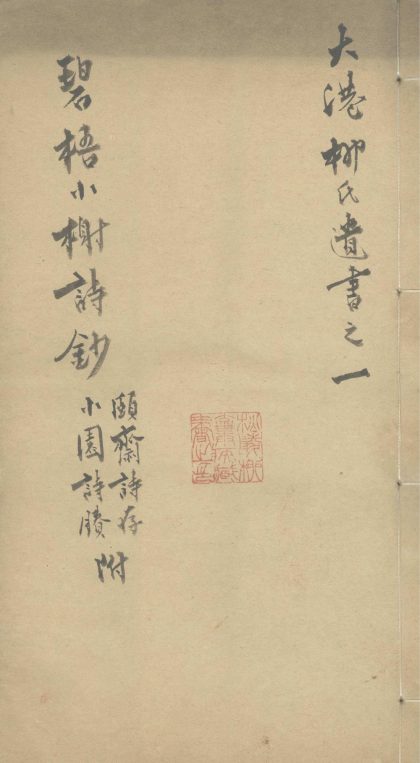 大港柳氏遺書之一
碧梧小榭詩鈔
頤齋詩存
小園詩賸
附